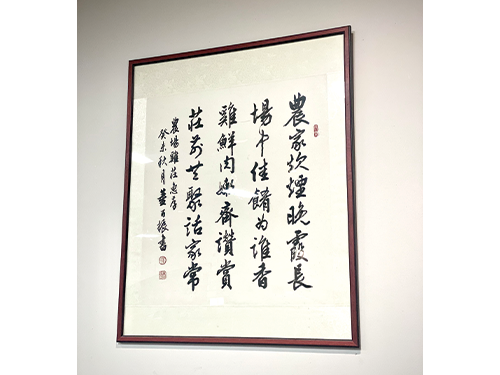 農家炊煙晚霞長
場中佳餚為誰香
雞鮮肉嫩齊讚賞
莊前共聚話家常
農場雞莊惠存
癸未秋月董振書